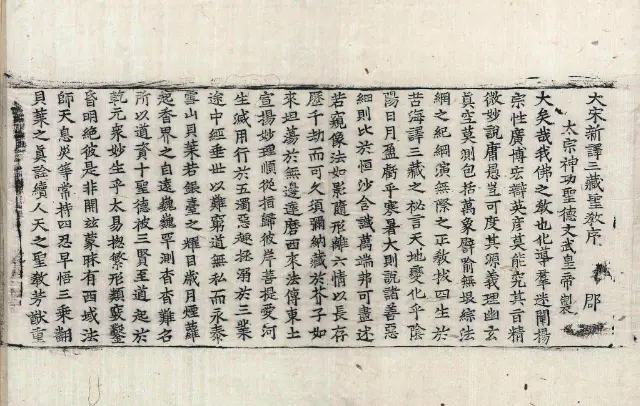 大宋新譯三藏聖教序 郡
太宗神功聖德文武皇帝製
大矣哉我佛之教也化導羣迷闡揚
宗性廣博宏辯英彦莫能究其旨精
微妙說庸愚豈可度其源義理幽玄
真空莫測包括萬象譬喻無垠綜法
網之紀綱演無際之正教拔四生於
苦海譯三藏之秘言天地變化乎陰
陽日月盈虧乎寒暑大則說諸善惡
細則比於恒沙含識萬端弗可盡述
若窺像法如影隨形離六情以長存
歷千劫而可久須彌納藏於芥子如
來坦蕩於無邊達磨西來法傳東土
宣揚妙理順從指歸彼岸菩提愛河
生滅用行於五濁惡趣拯溺於三業
途中經垂世以難窮道無私而永泰
雪山貝葉若銀臺之耀目歲月煙蘿
起香界之自遠巍巍罕測杳杳難名
所以道資十聖德被三賢至道起於
乾元衆妙生乎太易揔繁形類竅鑿
昏明絕彼是非開兹蒙昧有西域法
師天息災等常持四忍早悟三乘翻
貝葉之真詮續人天之聖教芳猷重